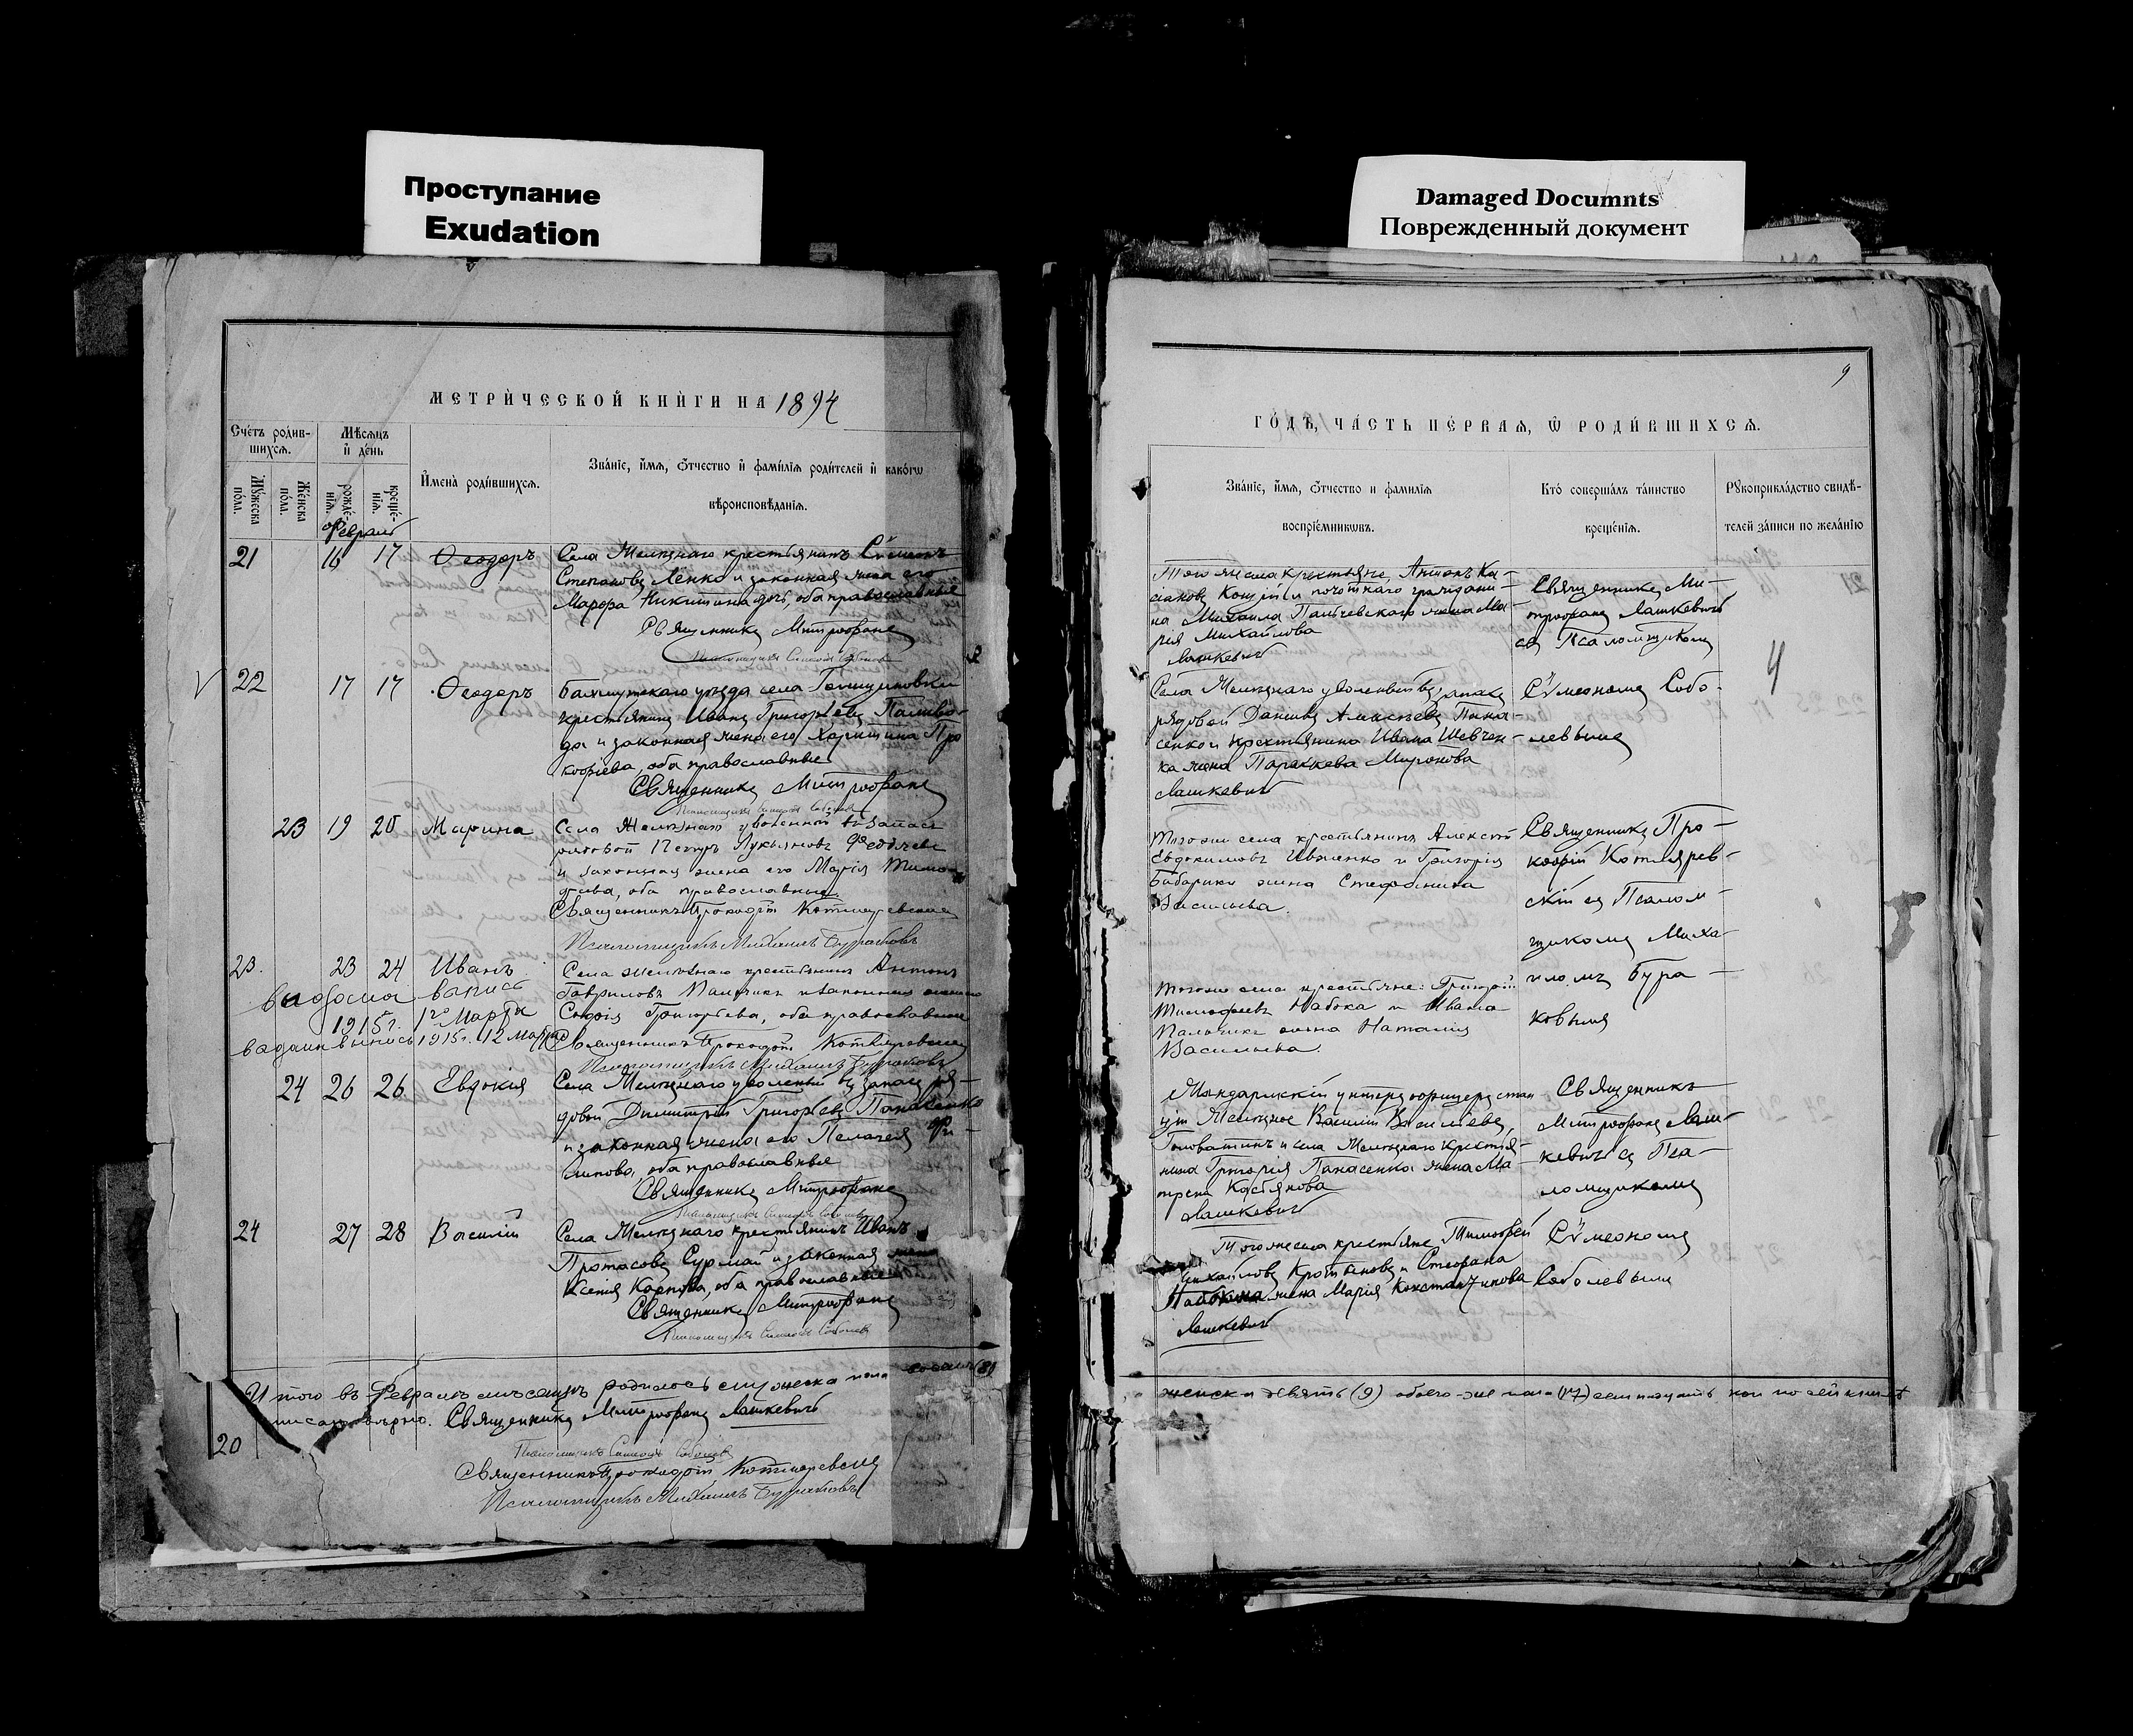 Проступание
Exudation
Damaged Documnts
Поврежденный документ
МЕТРИ́ЧЕСКОЙ КНИ́ГИ НА 1894
Сче́тъ роди́в-
шихсѧ.
Мѣ́сѧцъ
и҆ де́нь
И҆мена̀ роди́вшихсѧ.
Зва́нїе, и҆́мѧ, ѻ҆́тчество и҆ фамі́лїѧ роди́телей и҆ како́гѡ
вѣроисповѣ́данїѧ.
Мꙋ́жеска
по́ла.
Же́нска
по́ла.
рожде́-
нїѧ.
креще́-
нїѧ.
Февраль
21 16 17 Ѳеодоръ
Села Желѣзнаго крестьянинъ Сѵмеонъ
Степановъ Ленко и законная жена его
Марфа Никитина, оба православные
Священникъ Митрофанъ
Псаломщикъ Симеонъ Соболевъ
22 17 17 Ѳеодоръ
Бахмутскаго уѣзда села
крестьянинъ Иванъ Григорьевъ Паливо-
да и законная жена его Харитина Про
кофіева, оба православные
Священникъ Митрофанъ
Псаломщикъ Симеонъ Соболевъ
23 19 20 Марина
Села Желѣзнаго уволенный въ запасъ
рядовой Петръ Лукьяновъ
и законная жена его Марія Тимо-
феева, оба православные.
Священникъ Прокофій Котляревскій
Псаломщикъ Михаилъ Бураковъ
23. 23 24 Иванъ
Села Желѣзнаго крестьянинъ Антонъ
Гавриловъ Пальчикъ и законная жена
Софія Григорьева, оба православные
выдана выпись
1915 г. 1го Марта
выдана выпись 1915 г. 12 марта
Священникъ Прокофій Котляревскій
Псаломщикъ Михаилъ Бураковъ
24 26 26 Евдокія
Села Желѣзнаго уволеный въ запасъ ря-
довой Димитрій Григорьевъ Панасенко
и законная жена его Пелагея Фи-
липова, оба православные
Священникъ Митрофанъ
Псаломщикъ Симеонъ Соболевъ
24 27 28 Василій
Села Желѣзнаго крестьянинъ Иванъ
Протасовъ Сурмай и законная жена
Ксенія Карпова, оба православные
Священникъ Митрофанъ
Псаломщикъ Симеонъ Соболевъ
Итого въ Февралѣ мѣсяцѣ родилось мужеска пола восемь (8)
писано вѣрно. Священникъ Митрофанъ Лашкевичъ
20
Псаломщикъ Симеонъ Соболевъ
Священникъ Прокофій Котляревскій
Псаломщикъ Михаилъ Бураковъ
9
ГО́ДЪ, ЧА́СТЬ ПЕ́РВАѦ, Ѡ҆ РОДИ́ВШИХСѦ.
Зва́нїе, и҆́мѧ, ѻ҆́тчество и҆ фами́лїѧ
воспрїе́мникѡвъ.
Кто̀ соверша́лъ та́инство
креще́нїѧ.
Рꙋкоприкла́дство свидѣ́-
телей за́писи по жела́нїю
Того же села крестьяне, Антонъ Ка-
сіановъ и почетнаго граждани-
на Михаила жена Ма-
рія Михайлова
Лашкевичъ
Священникъ Ми-
трофанъ Лашкевичъ
съ Псаломщикомъ
4
Села Желѣзнаго уволенный въ запасъ
рядовой Даніилъ Алексѣевъ Пана-
сенко и крестьянина Ивана Шевчен-
ка жена Параскева Миронова
Лашкевичъ
Сѵмеономъ Собо-
левымъ
Того же села крестьянинъ Алексѣй
Евдокимовъ Ивженко и Григорія
Бабарики жена Стефанида
Васильева.
Священникъ Про-
кофій Котлярев-
скій съ Псалом-
щикомъ Миха-
иломъ Бура-
ковымъ
Того же села крестьяне: Григорій
Тимофеевъ Набока и Ивана
Пальчика жена Наталія
Васильева.
Жандармскій унтеръ офицеръ стан
ціи Желѣзное Василій Васильевъ
Головатинъ и села Желѣзнаго крестья-
нина Григорія Панасенка жена Ма-
трена Касьянова
Лашкевичъ
Священникъ
Митрофанъ Лаш-
кевичъ съ Пса-
ломщикомъ
Того же села крестьяне Тимофей
Михайловъ и Стефана
жена Марія Константинова
Лашкевичъ
Сѵмеономъ
Соболевымъ
женска девять (9) обоего-же пола (17) семнадцать